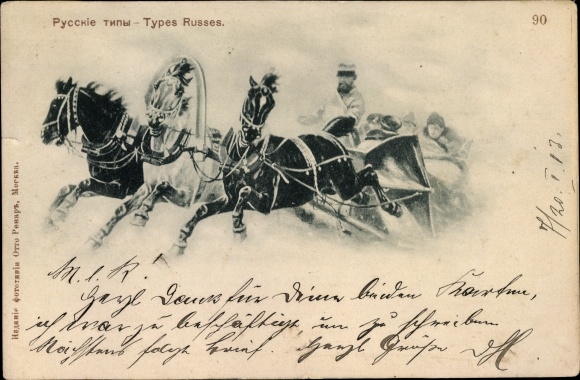 Русскіе типы – Types Russes.
90
Изданіе фототипіи Отто Ренаръ, Москва.
7/20. I. 03.
M. l. K.!
Herzl. Dank für Deine beiden Karten,
ich war zu beschäftigt, um zu schreiben
Nächstens folgt Brief. Herzl. Grüße